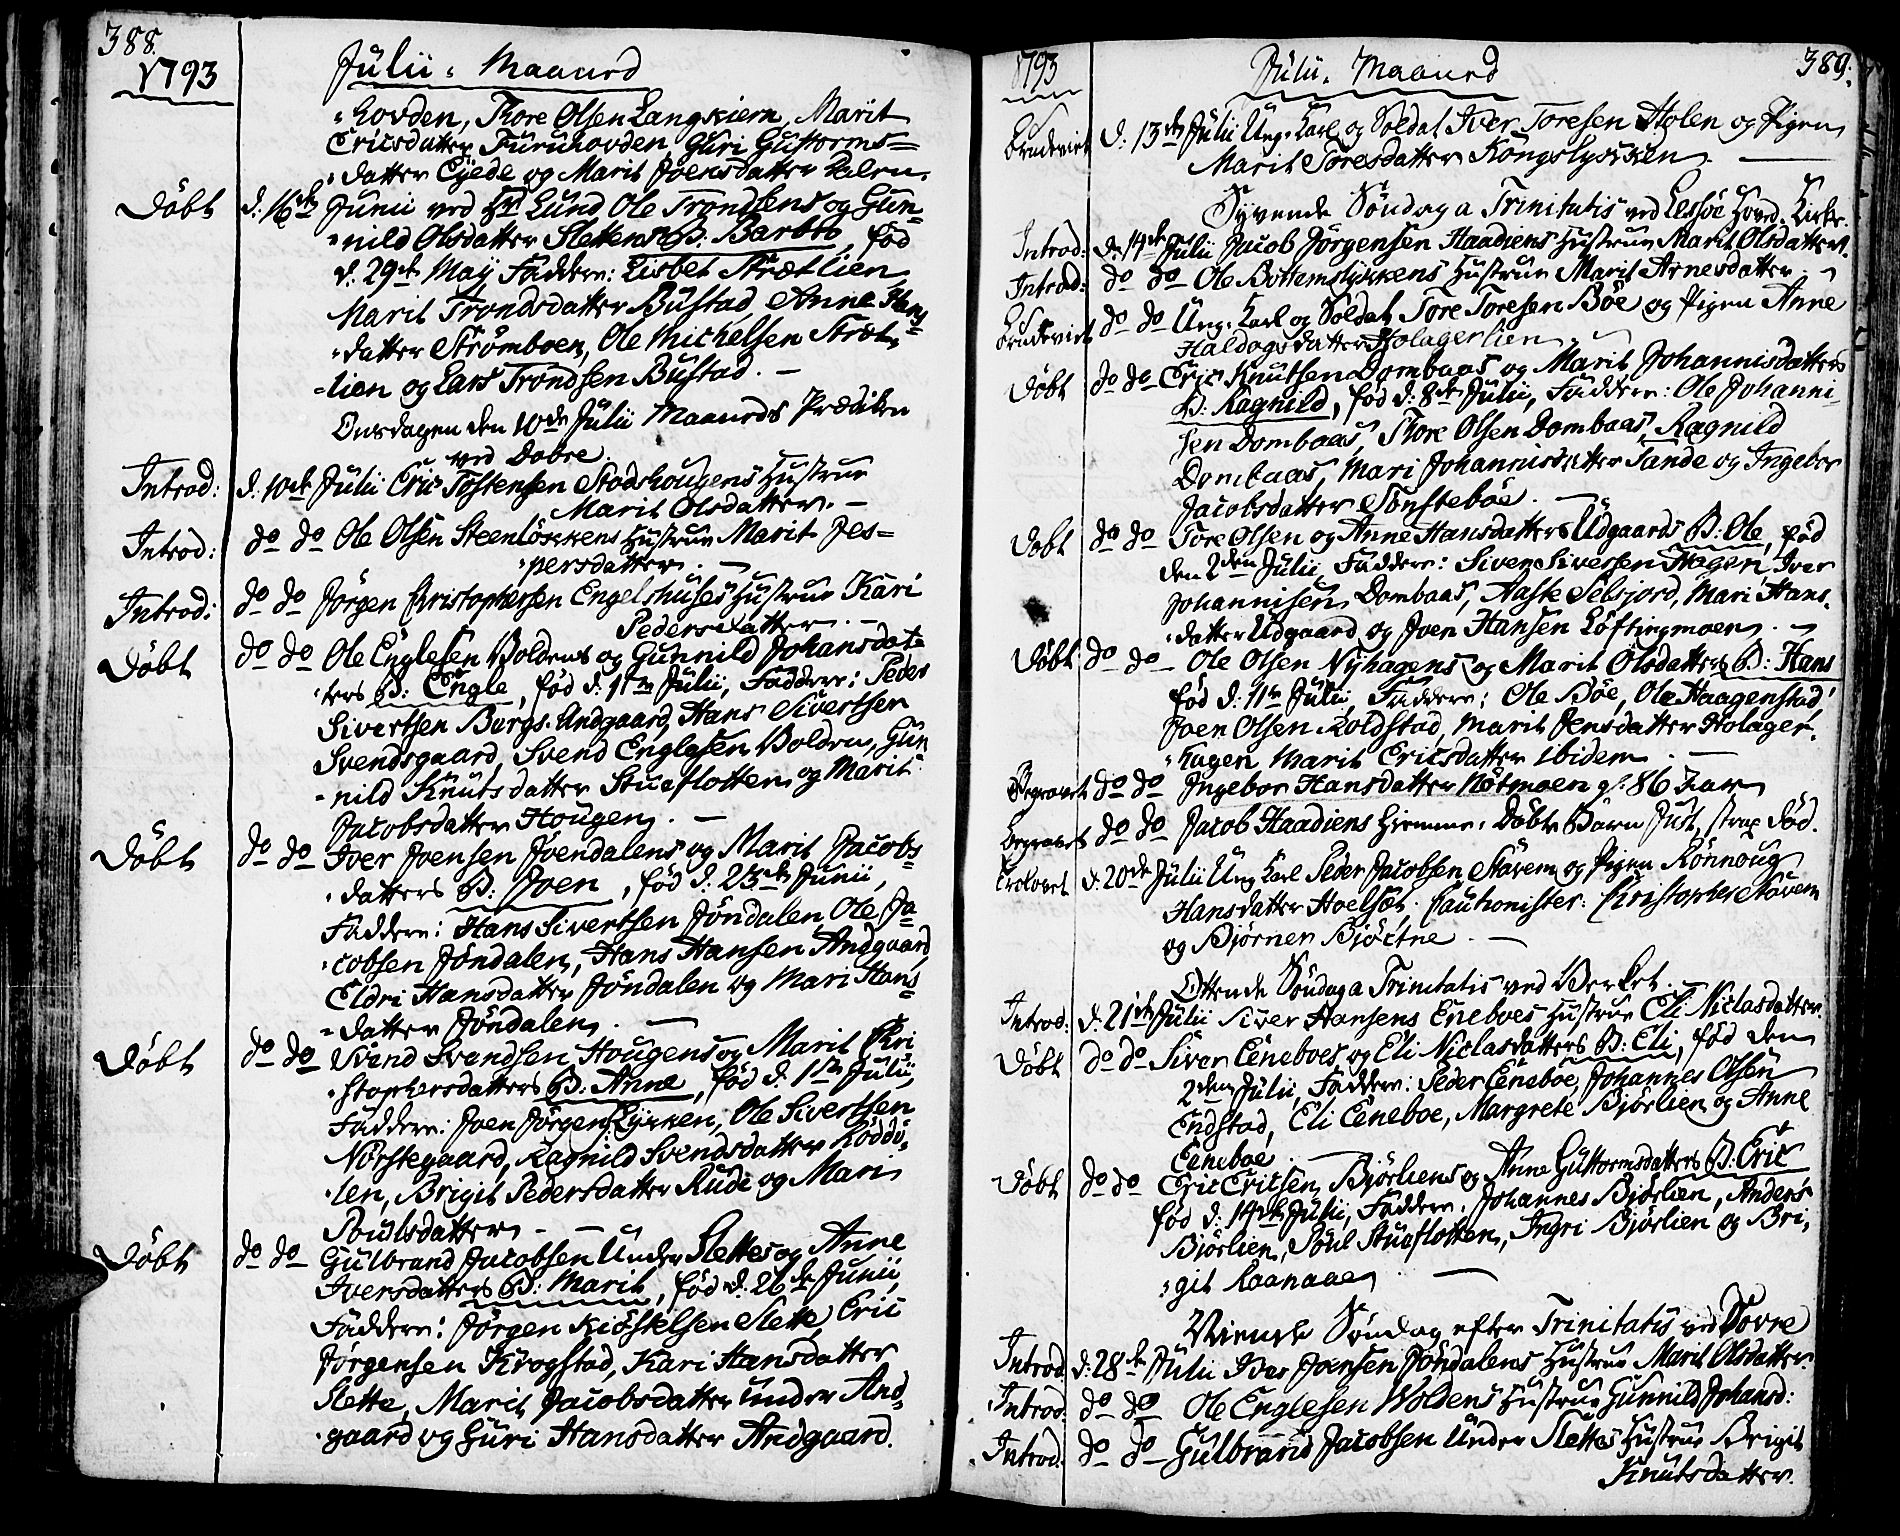 388.
1793
Julii Maaned
hovden, Thore Olsen Langkiern, Marit
Ericsdatter Furuhovden Guri Guttorms=
datter Eyede og Marit Joensdatter
Döbt d: 16de Junii ved Hr Lund Ole Trondsens og Gun-
nild Olsdatter Slettens B: Barbro, föd
d. 29de May, Faddere: Lisbet Strætlien
Marit Trondsdatter Bustad, Anne Hans
datter Strømboen, Ole Michelsen Stræt-
lien og Lars Trondsen Bustad. –
Onsdagen den 10de Julii Maaneds Prædiken
ved Dovre.
Introd: d. 10de Julii Eric Tostensen Stodshougens Hustrue
Marit Olsdatter. –
Introd: do do Ole Olsen Steenløkkens Hustrue Marit Jes=
persdatter. –
Introd: do do Jörgen Christophersen Engelshuses Hustrue Kari
Pedersdatter. –
Döbt do do Ole Englesen Voldens og Gunnild Johansdat-
ters B: Engle, föd d: 1ste Julii, Faddere: Peder
Sivertsen Bergs. Andgaard, Hans Sivertsen
Svendsgaard, Svend Englesen Volden, Gun
nild Knutsdatter Stueflotten og Marit
Jacobsdatter Hougen. –
Döbt do do Iver Joensen Joendalens og Marit Jacobs-
datters B: Joen, föd d: 23de Junii,
Faddere: Hans Sivertsen Jöndalen, Ole Ja-
cobsen Jöndalen, Hans Hansen Andgaard
Eldri Hansdatter Jöndalen og Mari Hans-
datter Jöndalen. –
Döbt do do Svend Svendsen Hougens og Marit Chri
stophersdatters B: Anne, föd d. 1ste Julii,
Faddere: Joen Jörgens Lykken, Ole Sivertsen
Norstegaard, Ragnild Svendsdatter Röddö-
len, Brigit Pedersdatter Rude og Mari
Poulsdatter – –
Döbt do do Gulbrand Jacobsen Under Slettes og Anne
Iversdatters B: Marit, föd d. 26de Junii,
Faddere: Jörgen Kiöstelsen Slette, Eric
Jørgensen Krogstad, Kari Hansdatter
Slette, Marit Jacobsdatter under And-
gaard og Guri Hansdatter Andgaard.
1793 Julii Maaned 389.
Brudeviet d: 13de Julii Ung. Karl og Soldat Iver Toresen Stolen og Pigen
Marit Toresdatter Kongslykken –
Syvende Söndag a Trinitatis ved Lessöe Hoved Kirke.
Introd: d. 14de Julii Jacob Jörgensen Haadiens Hustrue Marit Olsdatter.
Introd: do do Ole Bottemslykkens Hustrue Marit Arnesdatter –
Brudeviet do do Ung. Karl og Soldat Tore Toresen Böe og Pigen Anne
Haldogsdatter Holagerlien –
Döbt do do Eric Knutsen Dombaas og Marit Johannisdatters
B: Ragnild, föd d: 8de Julii, Faddere: Ole Johanni-
sen Dombaas, Thore Olsen Dombaas, Ragnild
Dombaas, Mari Johannisdatter Sande og Ingebor
Jacobsdatter Tonsteböe. –
Döbt do do Tore Olsen og Anne Hansdatters Udgaards B: Ole, föd
den 2den Julii, Faddere: Siver Siversen Hagen, Iver
Johannisen Dombaas, Aaste Selsjord, Mari Hans-
datter Udgaard og Joen Hansen Löftingmoen. –
Döbt do do Ole Olsen Nyhagens og Marit Olsdatters B: Hans
föd d: 11te Julii, Faddere: Ole Böe, Ole Haagenstad,
Joen Olsen Koldstad, Marit Jensdatter Holager-
hagen Marit Ericsdatter ibidem –
Begravet do do Ingebor Hansdatter Nötmoen gl. 86 Aar
Begravet do do Jacob Haadiens Hiemme-Döbte Barn Just, strax död.
Trolovet d. 20de Julii Ung Karl Peder Jacobsen Stavem og Pigen Rönnoug
Hansdatter Hoelsæt. Cautionister: Christopher Stavem
og Bjørner Bjöctne –
Ottende Söndag a Trinitatis ved Verket.
Introd: d. 21de Julii Siver Hansens Eneboes Hustrue Eli Niclasdatter.
Döbt do do Siver Eeneboes og Eli Niclasdatters B: Eli, föd den
2den Julii, Faddere: Peder Eeneböe, Johannes Olsen
Endstad, Eli Eeneboe, Margrete Bjørlien og Anne
Eeneboe. –
Döbt do do Eric Ericsen Bjørliens og Anne Guttormsdatters B: Eric
föd d: 14de Julii, Faddere: Johannes Bjørlien, Anders
Bjørlien, Poul Stueflotten, Ingri Bjørlien og Bri-
git Raanaae –
Niende Söndag efter Trinitatis ved Dovre
Introd d: 28de Julii Iver Joensen Jöndalens Hustrue Marit Olsdatter.
Introd. do do Ole Englesen Woldens Hustrue Gunnild Johansd:
Introd. do do Gulbrand Jacobsen Under Slettes Hustrue Brigit
Knutsdatter.